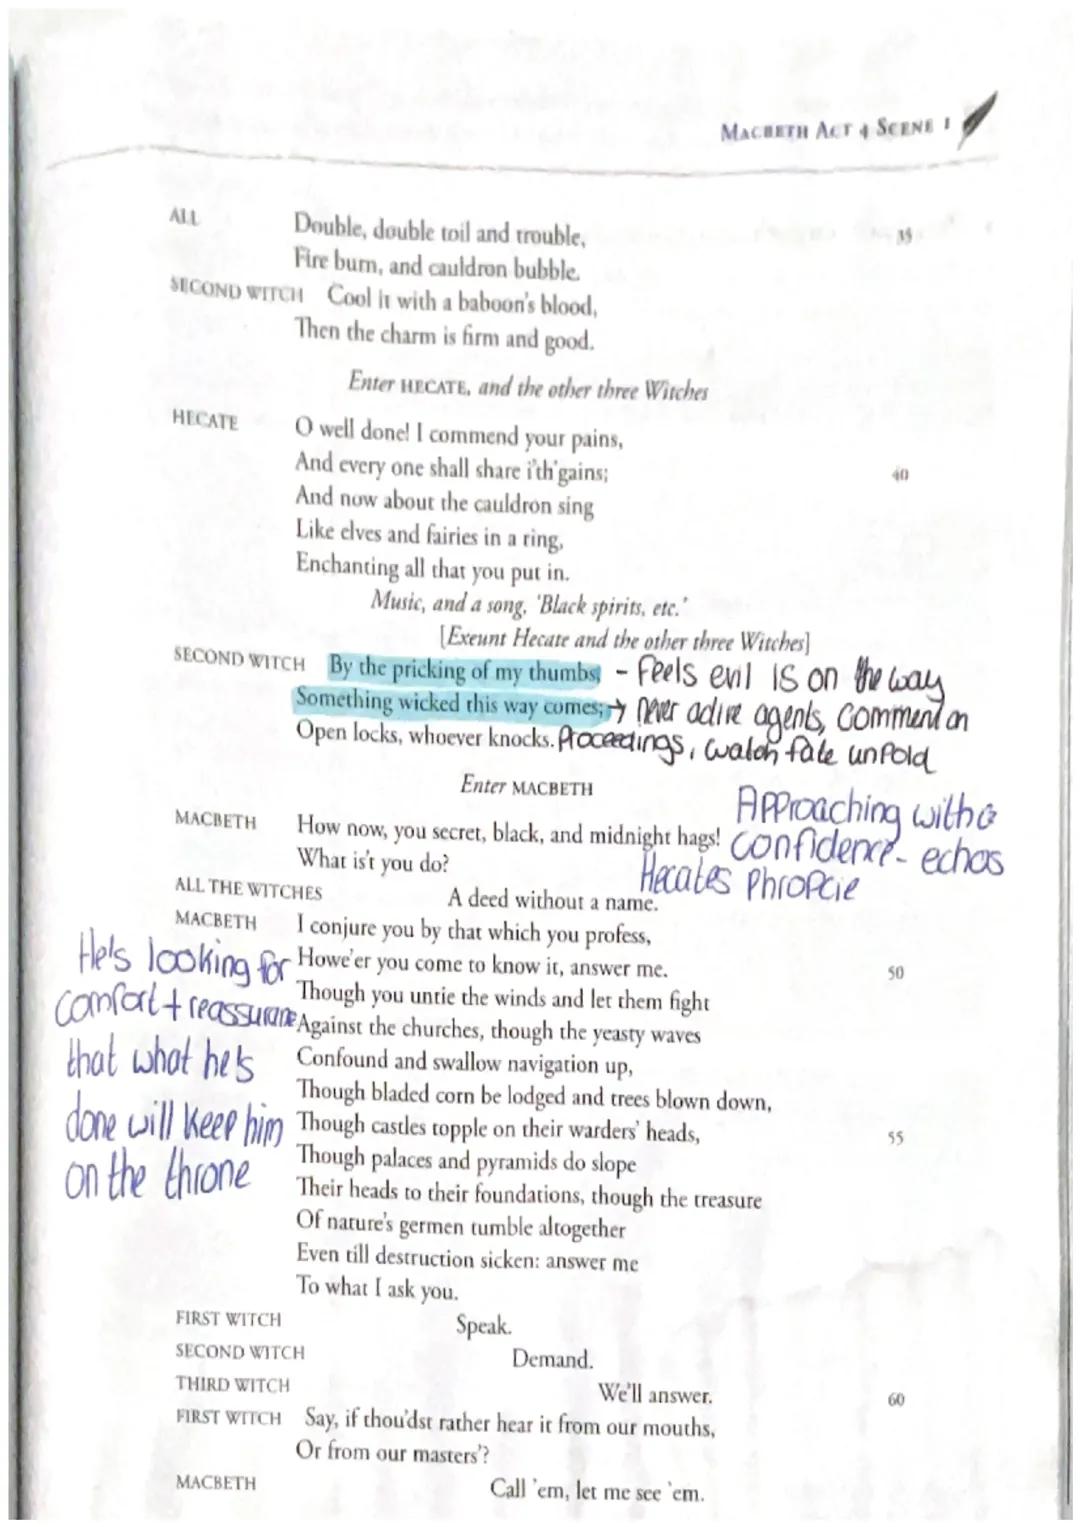 MACBETH ACT 4 SCENE 1
ALL Double, double toil and trouble, 35
Fire burn, and cauldron bubble.
SECOND WITCH Cool it with a baboon's blood,
Then the charm is firm and good.
Enter HECATE, and the other three Witches
HECATE O well done! I commend your pains,
And every one shall share i'th'gains; 40
And now about the cauldron sing
Like elves and fairies in a ring,
Enchanting all that you put in.
Music, and a song, 'Black spirits, etc.'
[Exeunt Hecate and the other three Witches]
SECOND WITCH By the pricking of my thumbs, - feels evil is on the way
Something wicked this way comes; → never active agents, comment on
Open locks, whoever knocks. Proceedings, watch fate unfold
Enter MACBETH
MACBETH How now, you secret, black, and midnight hags!
What is't you do?
Approaching with
confidence - echos
Hecates Phropcie
ALL THE WITCHES A deed without a name.
MACBETH I conjure you by that which you profess,
Howe'er you come to know it, answer me. 50
Though you untie the winds and let them fight
Against the churches, though the yeasty waves
Confound and swallow navigation up,
Though bladed corn be lodged and trees blown down,
Though castles topple on their warders' heads, 55
Though palaces and pyramids do slope
Their heads to their foundations, though the treasure
Of nature's germen tumble altogether
Even till destruction sicken: answer me
To what I ask you.
He's looking for
comfort + reassurane
that what he's
done will keep him
on the throne
FIRST WITCH Speak.
SECOND WITCH Demand.
THIRD WITCH We'll answer. 60
FIRST WITCH Say, if thou'dst rather hear it from our mouths,
Or from our masters'?
MACBETH Call 'em, let me see 'em.